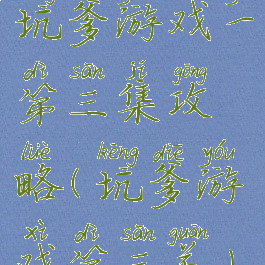 坑爹游戏二
dì sān jí gōng
第三集攻
lüè kēng diē yóu
略(坑爹游
xì dì sān guān
戏第三关)